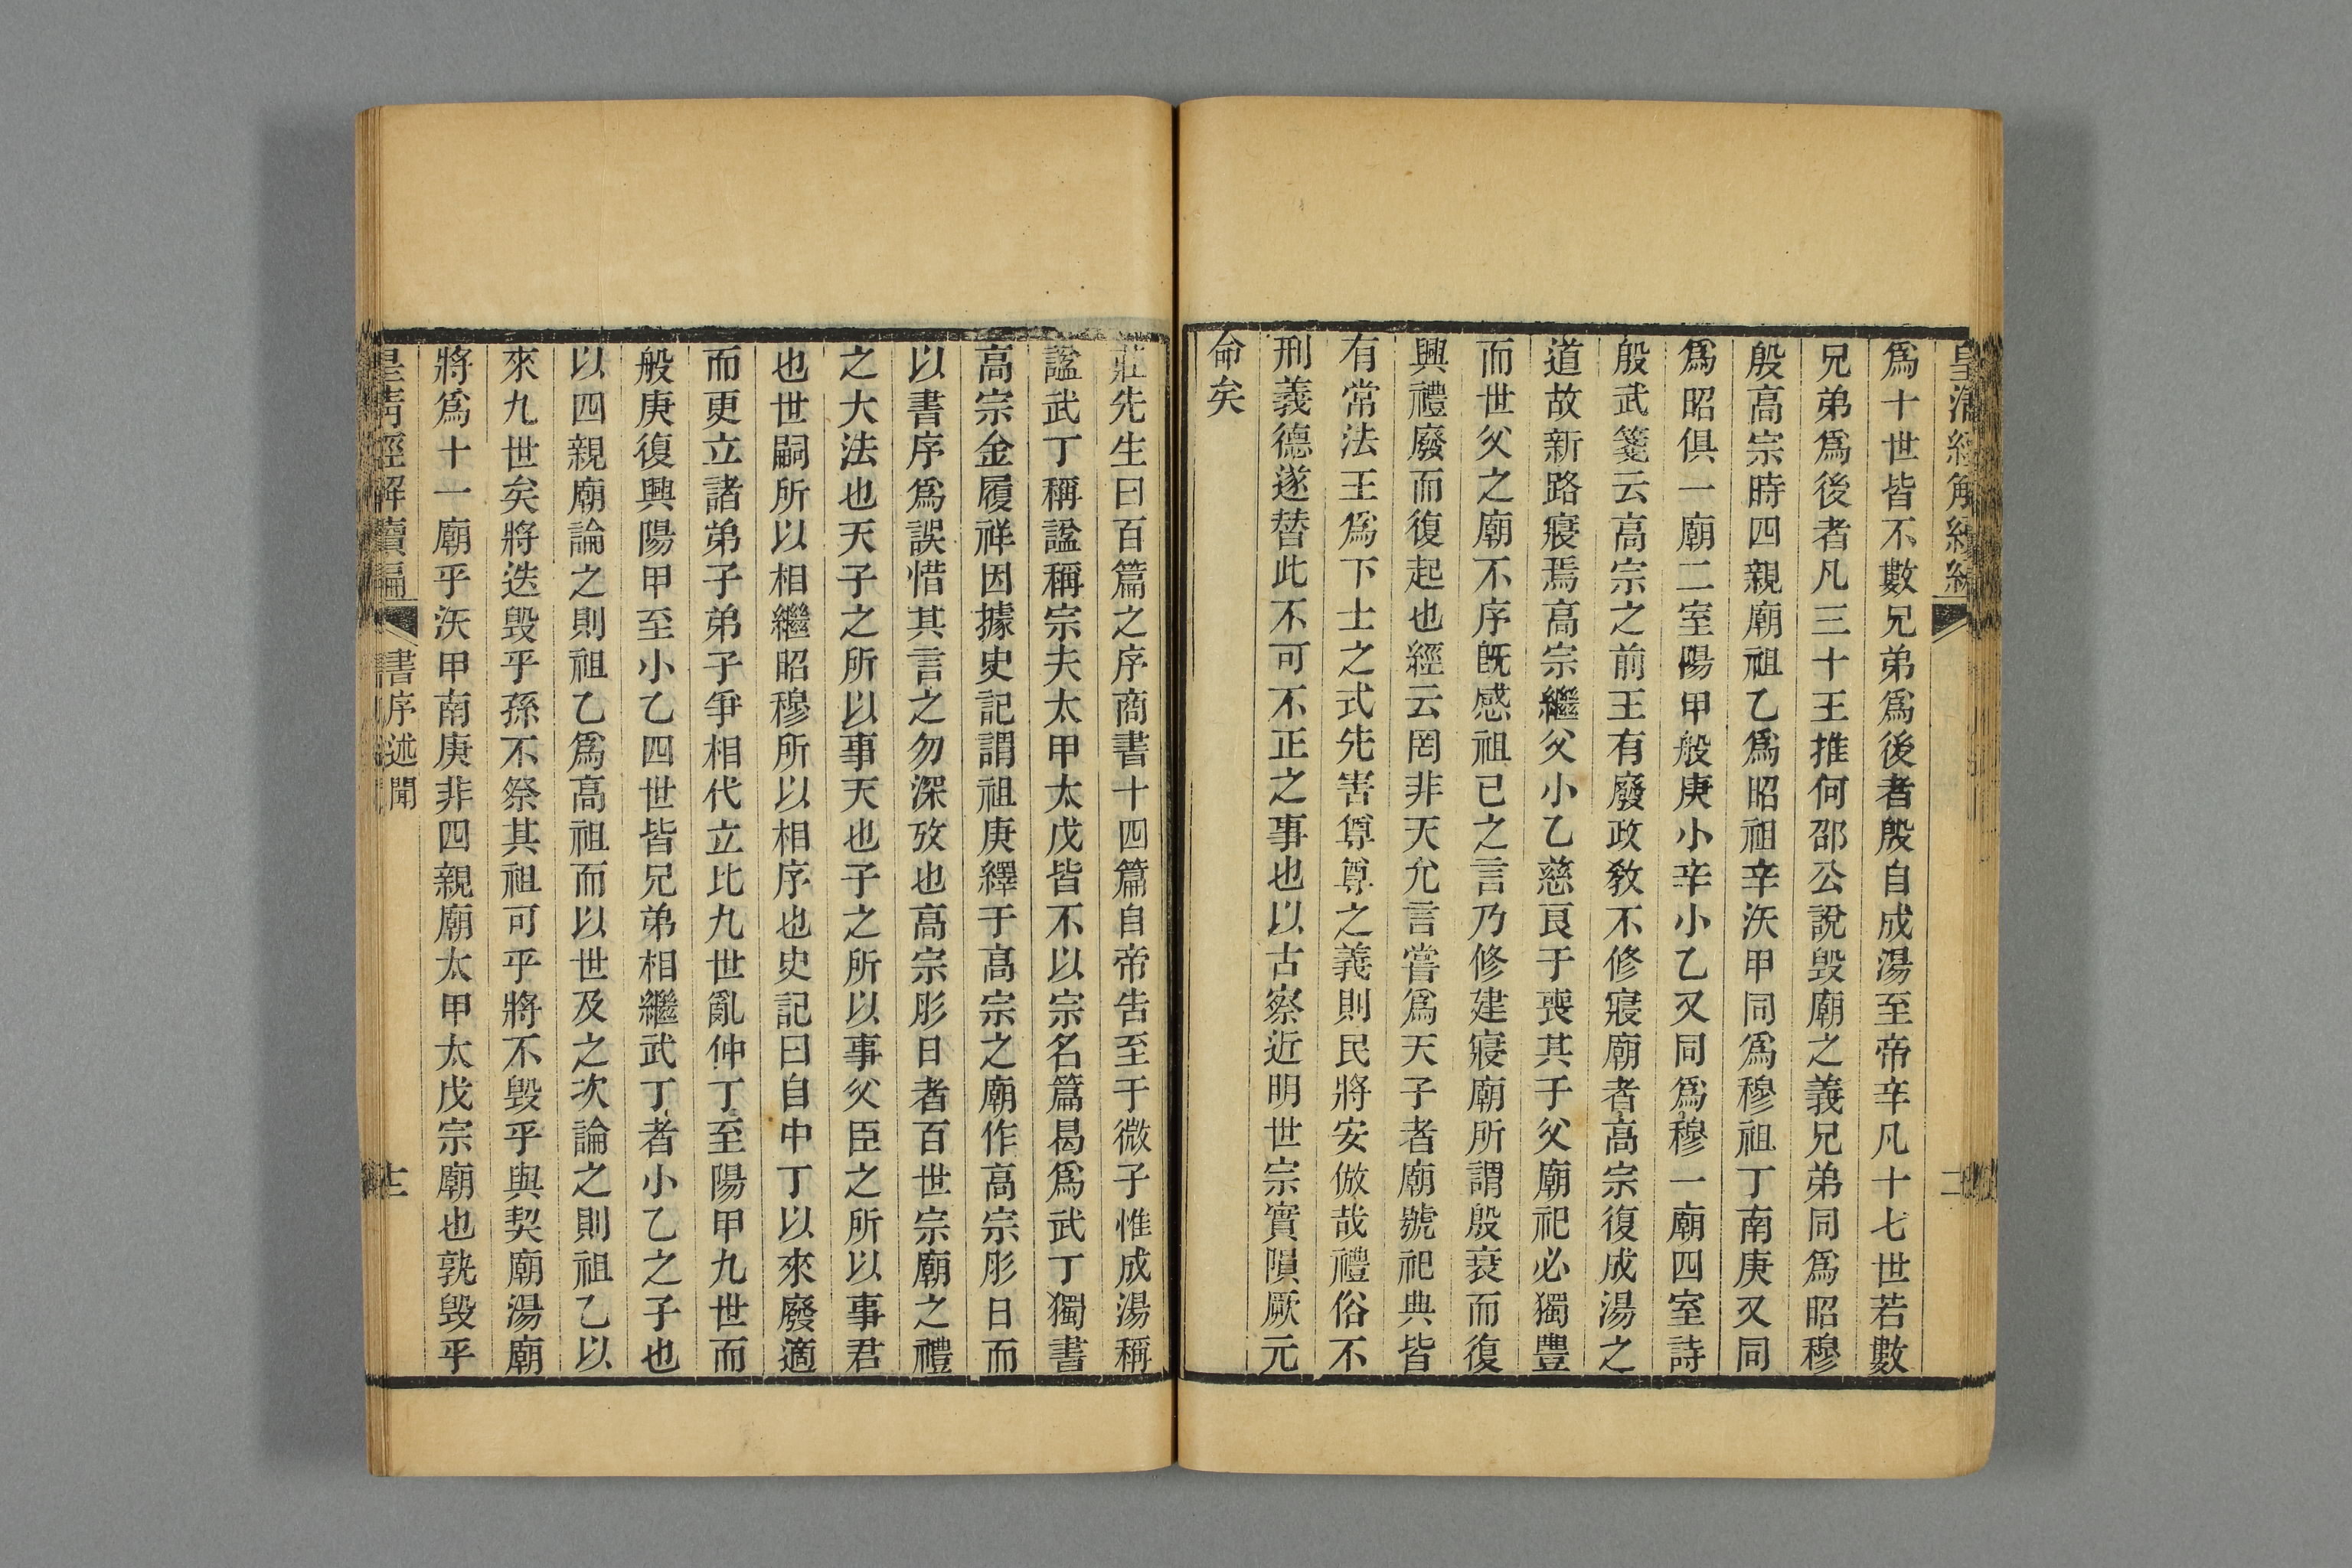 皇清經解續編
爲十世皆不數兄弟爲後者殷自成湯至帝辛凡十七世若數
兄弟爲後者凡三十王推何邵公說毀廟之義兄弟同爲昭穆
殷高宗時四親廟祖乙爲昭祖辛沃甲同爲穆祖丁南庚又同
爲昭俱一廟二室陽甲般庚小辛小乙又同爲穆一廟四室詩
殷武箋云高宗之前王有廢政敎不修寢廟者高宗復成湯之
道故新路寢焉高宗繼父小乙慈良于喪其于父廟祀必獨豐
而世父之廟不序旣感祖已之言乃修建寢廟所謂殷衰而復
興禮廢而復起也經云罔非天允言嘗爲天子者廟號祀典皆
有常法王爲下士之式先害尊尊之義則民將安倣哉禮俗不
刑義德遂替此不可不正之事也以古察近明世宗實隕厥元
命矣
莊先生曰百篇之序商書十四篇自帝告至于微子惟成湯稱
諡武丁稱諡稱宗夫太甲太戊皆不以宗名篇曷爲武丁獨書
高宗金履祥因據史記謂祖庚繹于高宗之廟作高宗肜日而
以書序爲誤惜其言之勿深攷也高宗肜日者百世宗廟之禮
之大法也天子之所以事天也子之所以事父臣之所以事君
也世嗣所以相繼昭穆所以相序也史記曰自中丁以來廢適
而更立諸弟子弟子爭相代立比九世亂仲丁至陽甲九世而
般庚復興陽甲至小乙四世皆兄弟相繼武丁者小乙之子也
以四親廟論之則祖乙爲高祖而以世及之次論之則祖乙以
來九世矣將迭毀乎孫不祭其祖可乎將不毀乎與契廟湯廟
將爲十一廟乎沃甲南庚非四親廟太甲太戊宗廟也孰毀乎
皇清經解續編
書序述聞